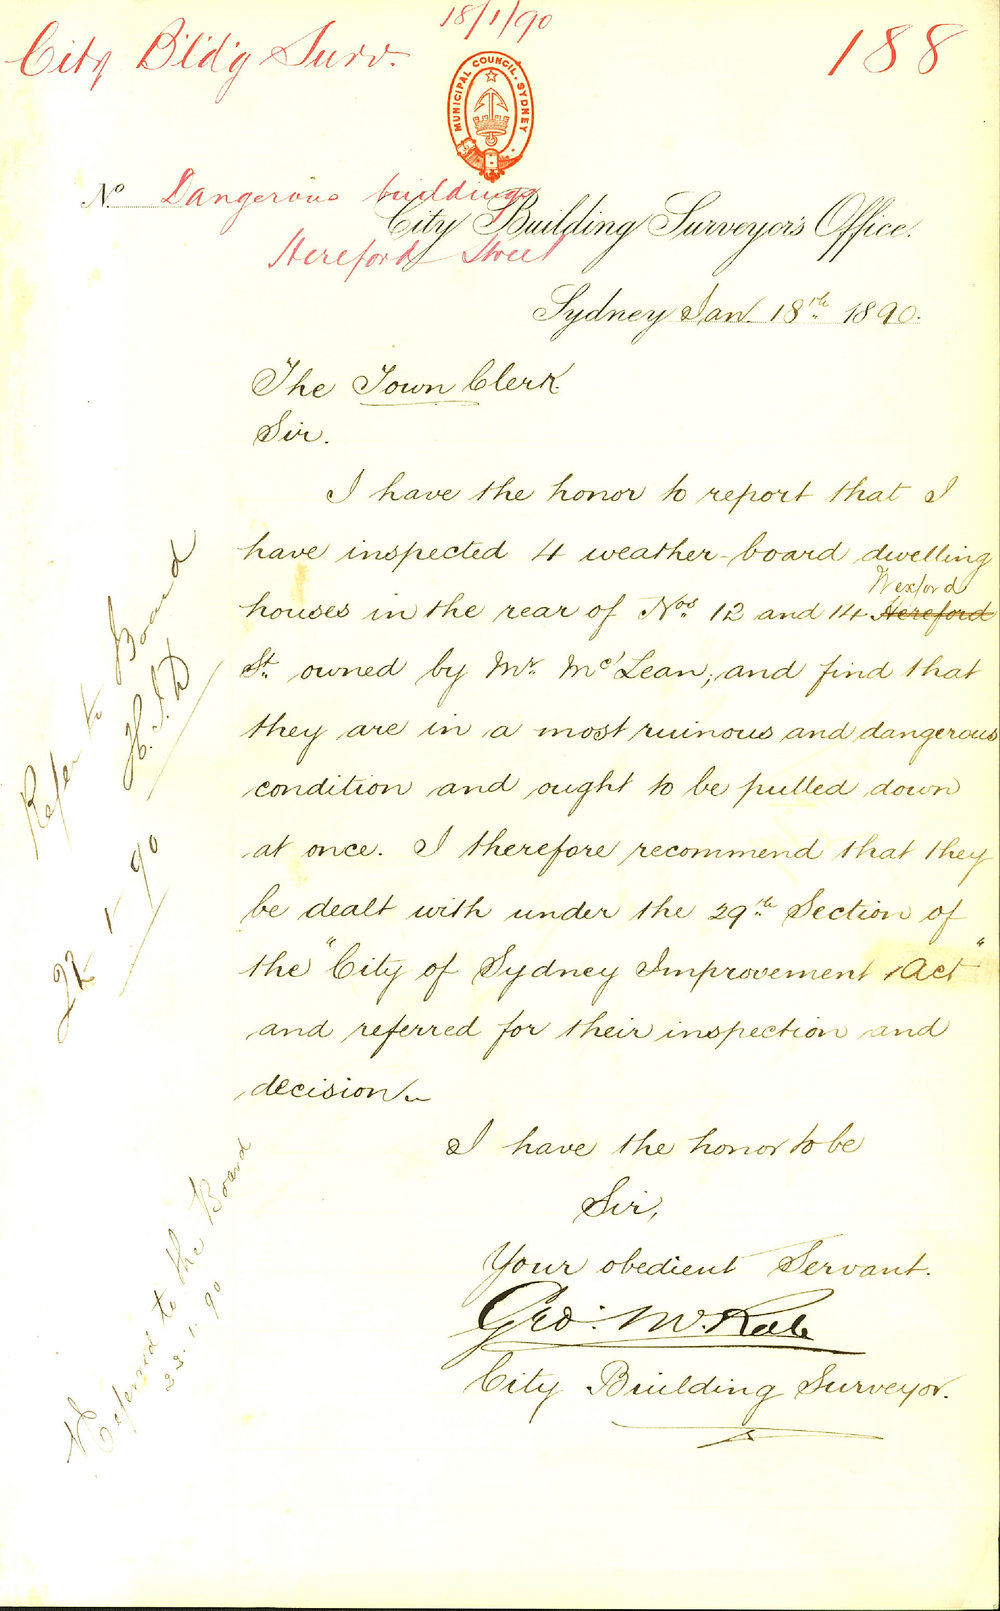 18/1/90
City Bldg Surv.
188
MUNICIPAL COUNCIL. SYDNEY
No Dangerous buildings
Hereford Street
City Building Surveyor's Office.
Sydney Jan. 18th 1890.
The Town Clerk
Sir.
I have the honor to report that I
have inspected 4 weather-board dwelling
Wexford
houses in the rear of Nos. 12 and 14 Hereford
St. owned by Mr. McLean; and find that
they are in a most ruinous and dangerous
condition and ought to be pulled down
at once. I therefore recommend that they
be dealt with under the 29th Section of
the "City of Sydney Improvement Act"
and referred for their inspection and
decision.
I have the honor to be
Sir,
Your obedient Servant.
Geo: McRae
City Building Surveyor.
Refer to Board
22 1 90
Referred to the Board
23.1.90